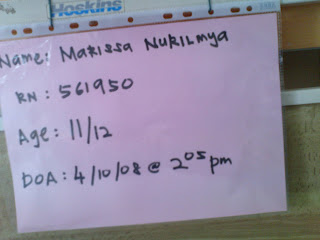 Hoskins
Name: Marissa Nurilmya
RN: 561950
Age: 11/12
DOA: 4/10/08 @ 2 05 pm